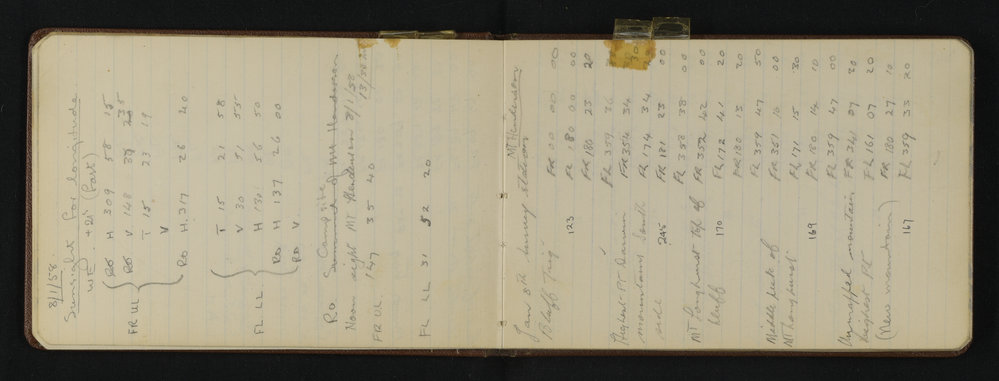 8/1/58.
Sunsight for longitude.
WE. +2s (Fast)
RO H 309 58 15
FR UL RO V 148 35
T 15 23 19
V
RO H 317 26 40
T 15 21 58
V 30 51 55
FL. LL. H 130 56 50
RO H 137 26 00
RO V.
Campsite
RO Summit of Mt Henderson
Noon sight Mt Henderson 8/1/58
FR UL. 147 35 40
FL LL 31 52 20
Jan 8th Survey station Mt Henderson
Bluff Trig FR 00 00 00
123 FL 180 00 00
FR 180 23 20
FL 359 36
Highest Pt Darwin FR 354 34
mountains South FL 174 34
side 245 FR 181 23 00
FL 358 38 00
Mt Longhurst top of FR 352 42 00
bluff 170 FL 172 41 20
FR 180 13 20
FL 359 47 50
Middle peak of FR 351 10 00
Mt Longhurst FL 171 15 30
169 FR 180 14 10
FL 359 47 00
Unmapped mountain FR 341 07 30
highest Pt FL 161 07 20
(New mountain) FR 180 27 10
167 FL 359 33 20